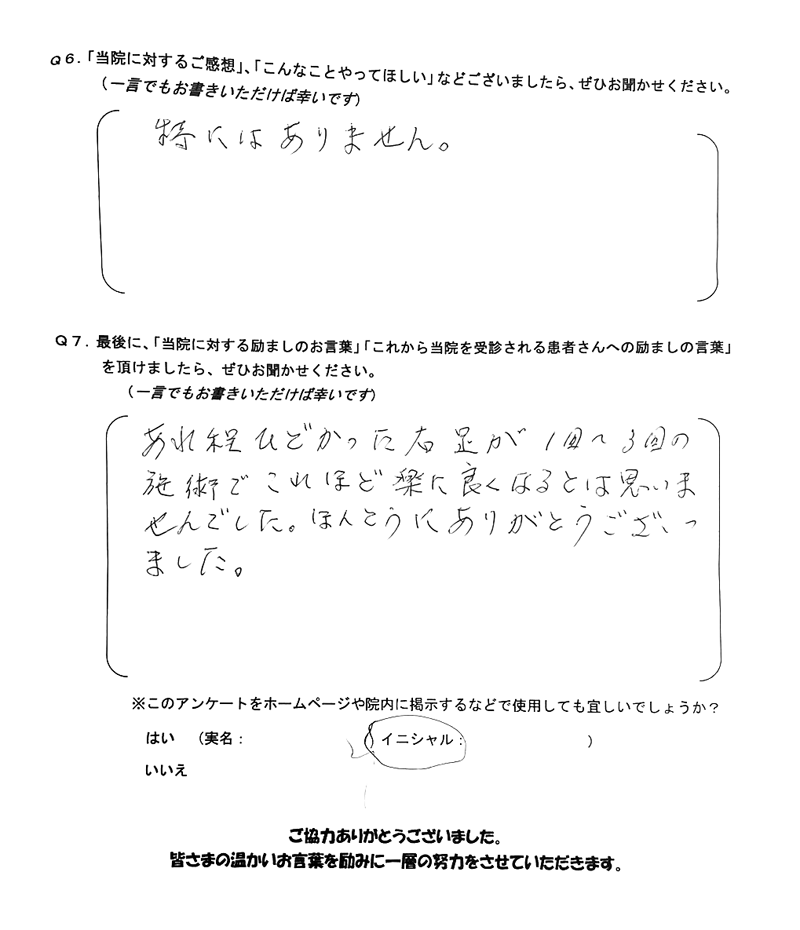 Q6.「当院に対するご感想」、「こんなことやってほしい」などございましたら、ぜひお聞かせください。
（一言でもお書きいただけば幸いです）
特にはありません。
Q7. 最後に、「当院に対する励ましのお言葉」「これから当院を受診される患者さんへの励ましの言葉」
を頂けましたら、ぜひお聞かせください。
（一言でもお書きいただけば幸いです）
あれ程ひどかった右足が1回〜3回の
施術でこれほど楽に良くなるとは思いま
せんでした。ほんとうにありがとうございっ
ました。
※このアンケートをホームページや院内に掲示するなどで使用しても宜しいでしょうか？
はい （実名： ） イニシャル： ）
いいえ
ご協力ありがとうございました。
皆さまの温かいお言葉を励みに一層の努力をさせていただきます。